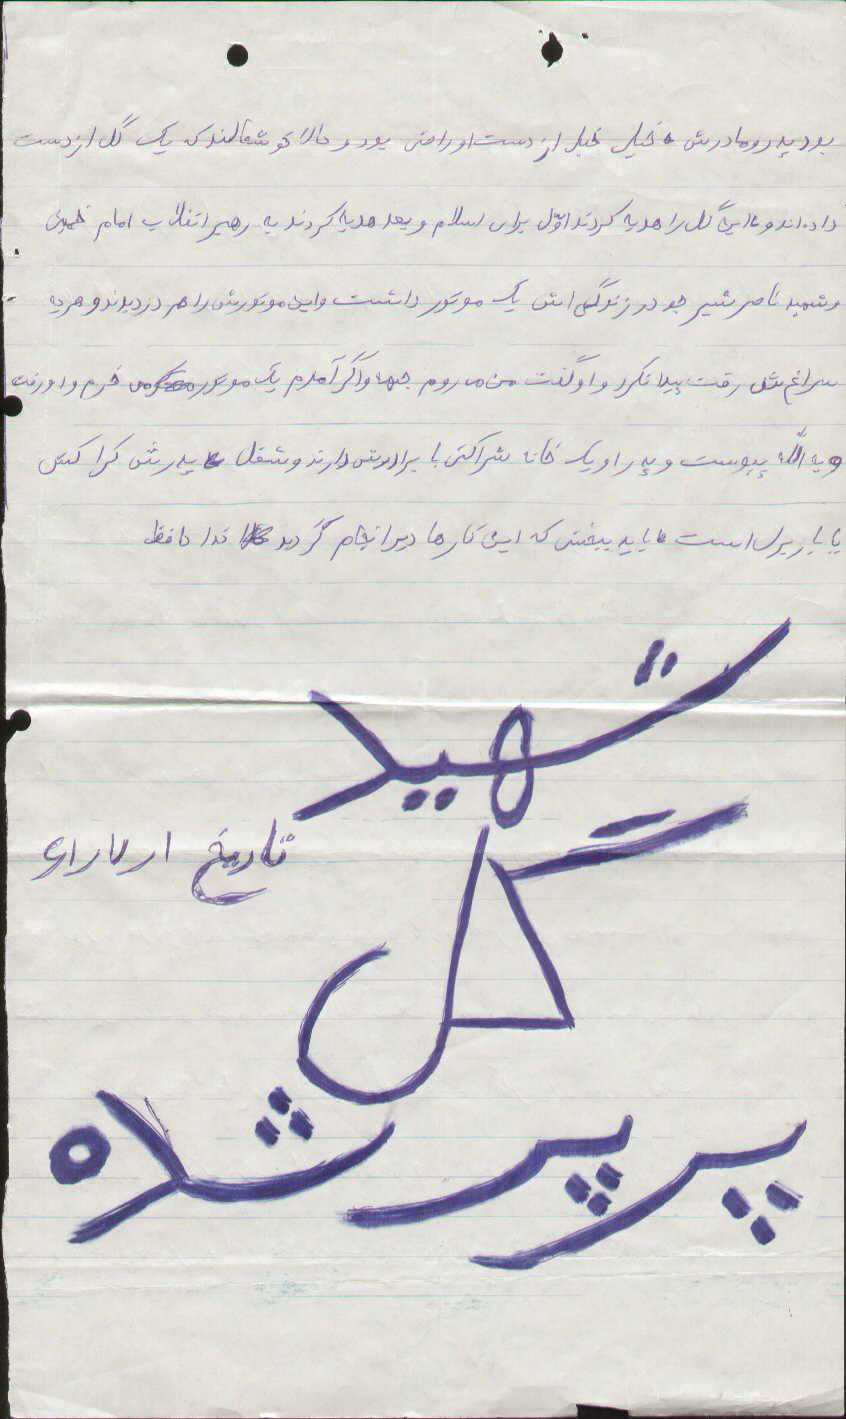 بود پدر و مادرش خیلی خیلی از دست او راضی بود و حالا خوشحالند که یک گل از دست
داده‌اند و این گل را هدیه کردند اوّل برای اسلام و بعد هدیه کردند به رهبر انقلاب امام خمینی
و شهید ناصر شیر جو در زندگی اش یک موتور داشت و این موتورش را هم دزدیدند و هر چه
سراغش رفت پیدا نکرد و او گفت من می روم جبهه و اگر آمدم یک موتور می خرم و او رفت
و به اللّه پیوست و پدر او یک خانه شراکتی با برادرش دارند و شغل پدرش کرا کش
با باربری است باید ببخشی که این کارها دیر انجام گردید خدا حافظ
شهید
تاریخ
گل
پرپر شده